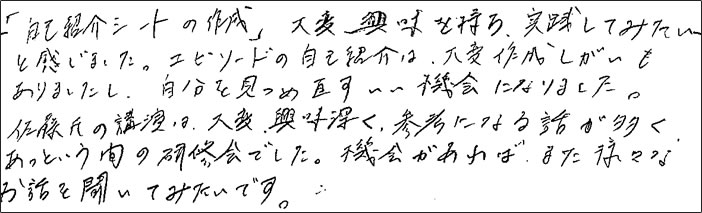 「自己紹介シートの作成」大変興味を持ち、実践してみたい
と感じました。エピソードの自己紹介は、大変作成しがいも
ありましたし、自分を見つめ直すいい機会になりました。
佐藤氏の講演は、大変、興味深く、参考になる話が多く
あっという間の研修会でした。機会があれば、また様々な
お話を聞いてみたいです。